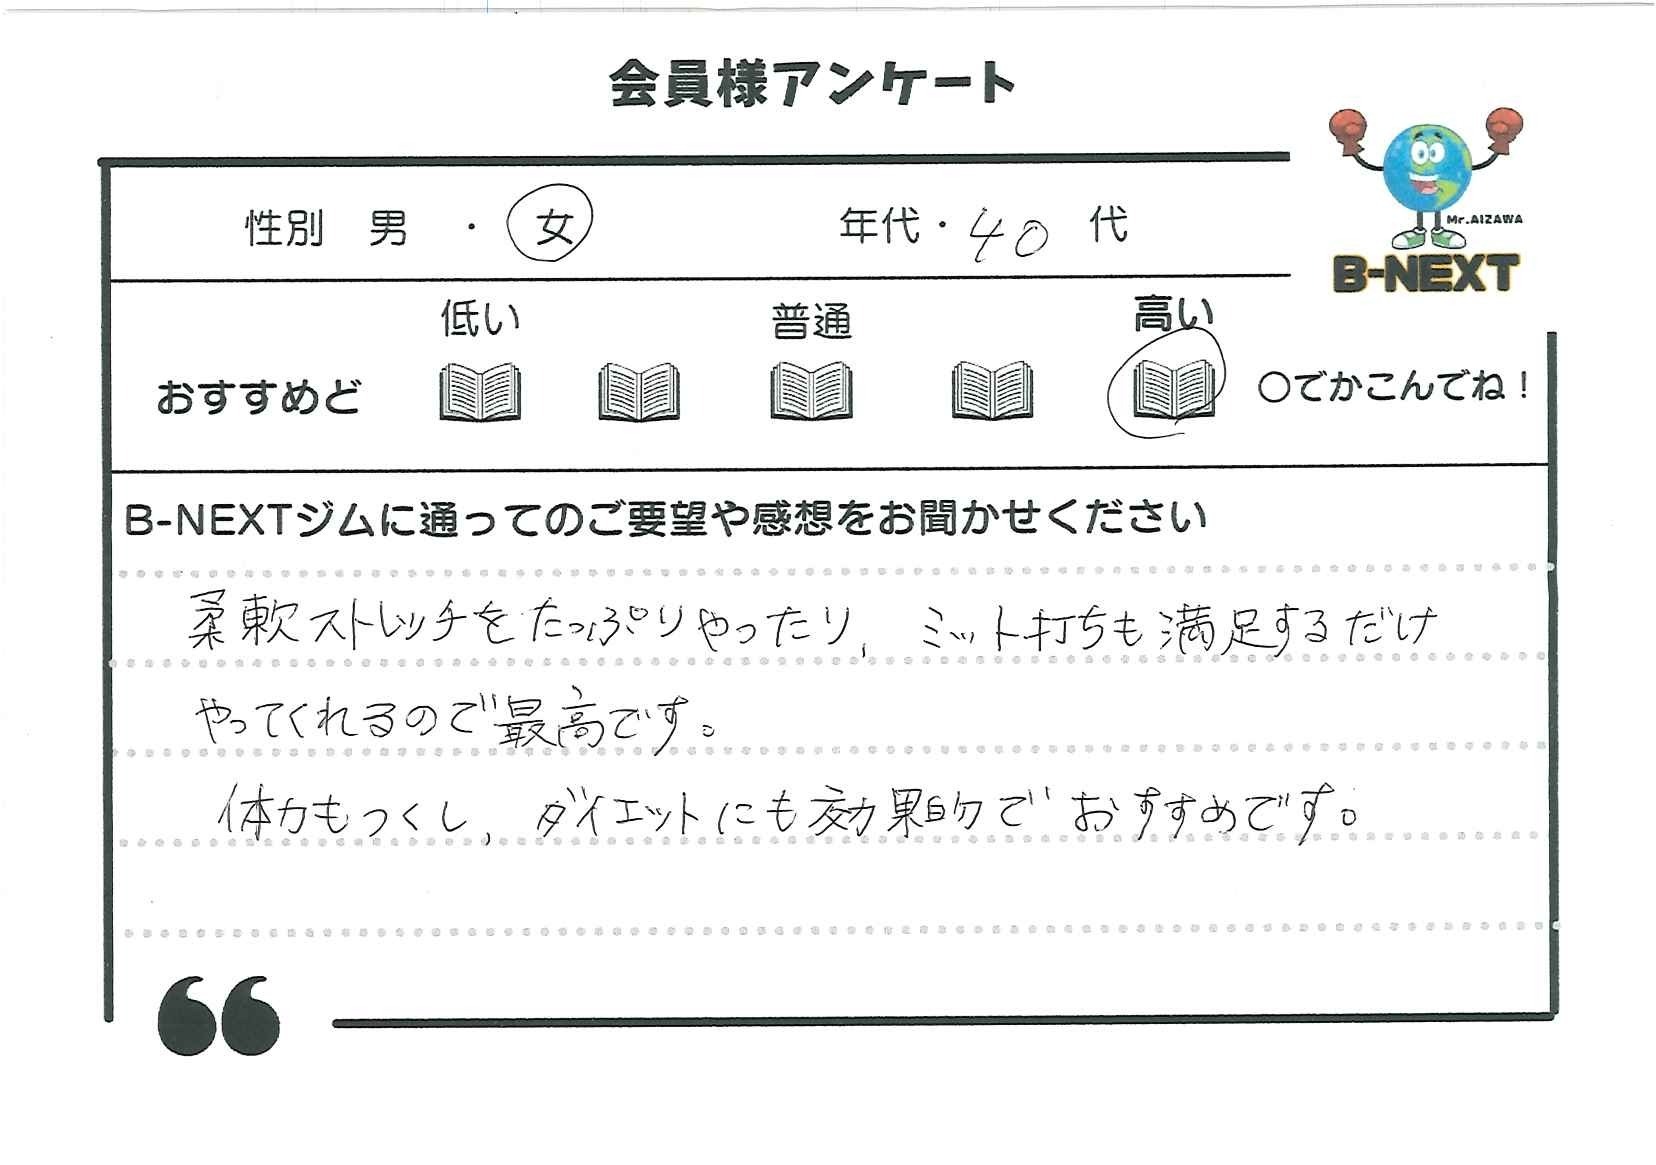 会員様アンケート
性別 男 ・ 女 年代・40代
Mr.AIZAWA
B-NEXT
低い 普通 高い
おすすめど ○でかこんでね！
B-NEXTジムに通ってのご要望や感想をお聞かせください
柔軟ストレッチをたっぷりやったり、ミット打ちも満足するだけ
やってくれるので最高です。
体力もつくし、ダイエットにも効果的でおすすめです。